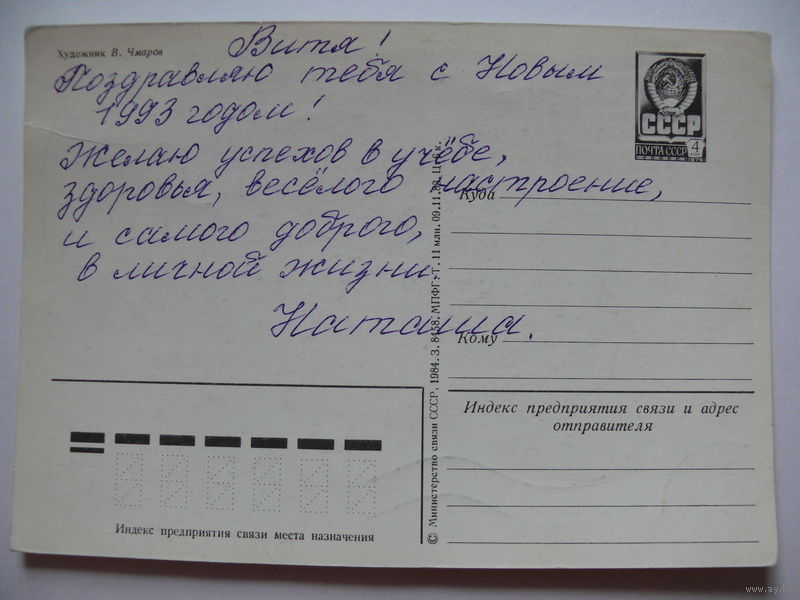 Художник В. Чмаров
Витя!
Поздравляю тебя с Новым
1993 годом!
Желаю успехов в учёбе,
здоровья, весёлого настроение,
и самого доброго,
в личной жизни.
Наташа.
СССР
ПОЧТА СССР 4
Куда
Кому
Индекс предприятия связи и адрес
отправителя
Индекс предприятия связи места назначения
© Министерство связи СССР, 1984. З. 8458. МПФГ. Т. 11 млн. 09.11.
www.ay.by